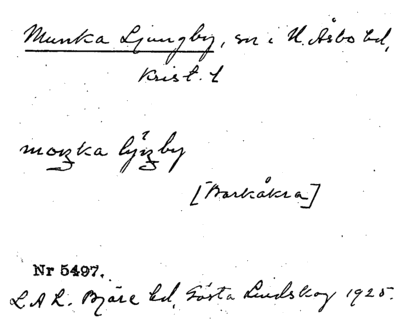 Munka Ljungby, sn i N. Åsbo hd,
Krist. l
moŋka lyŋby
[Barkåkra]
Nr 5497.
L A L. Bjäre hd, Gösta Lindskog 1925.